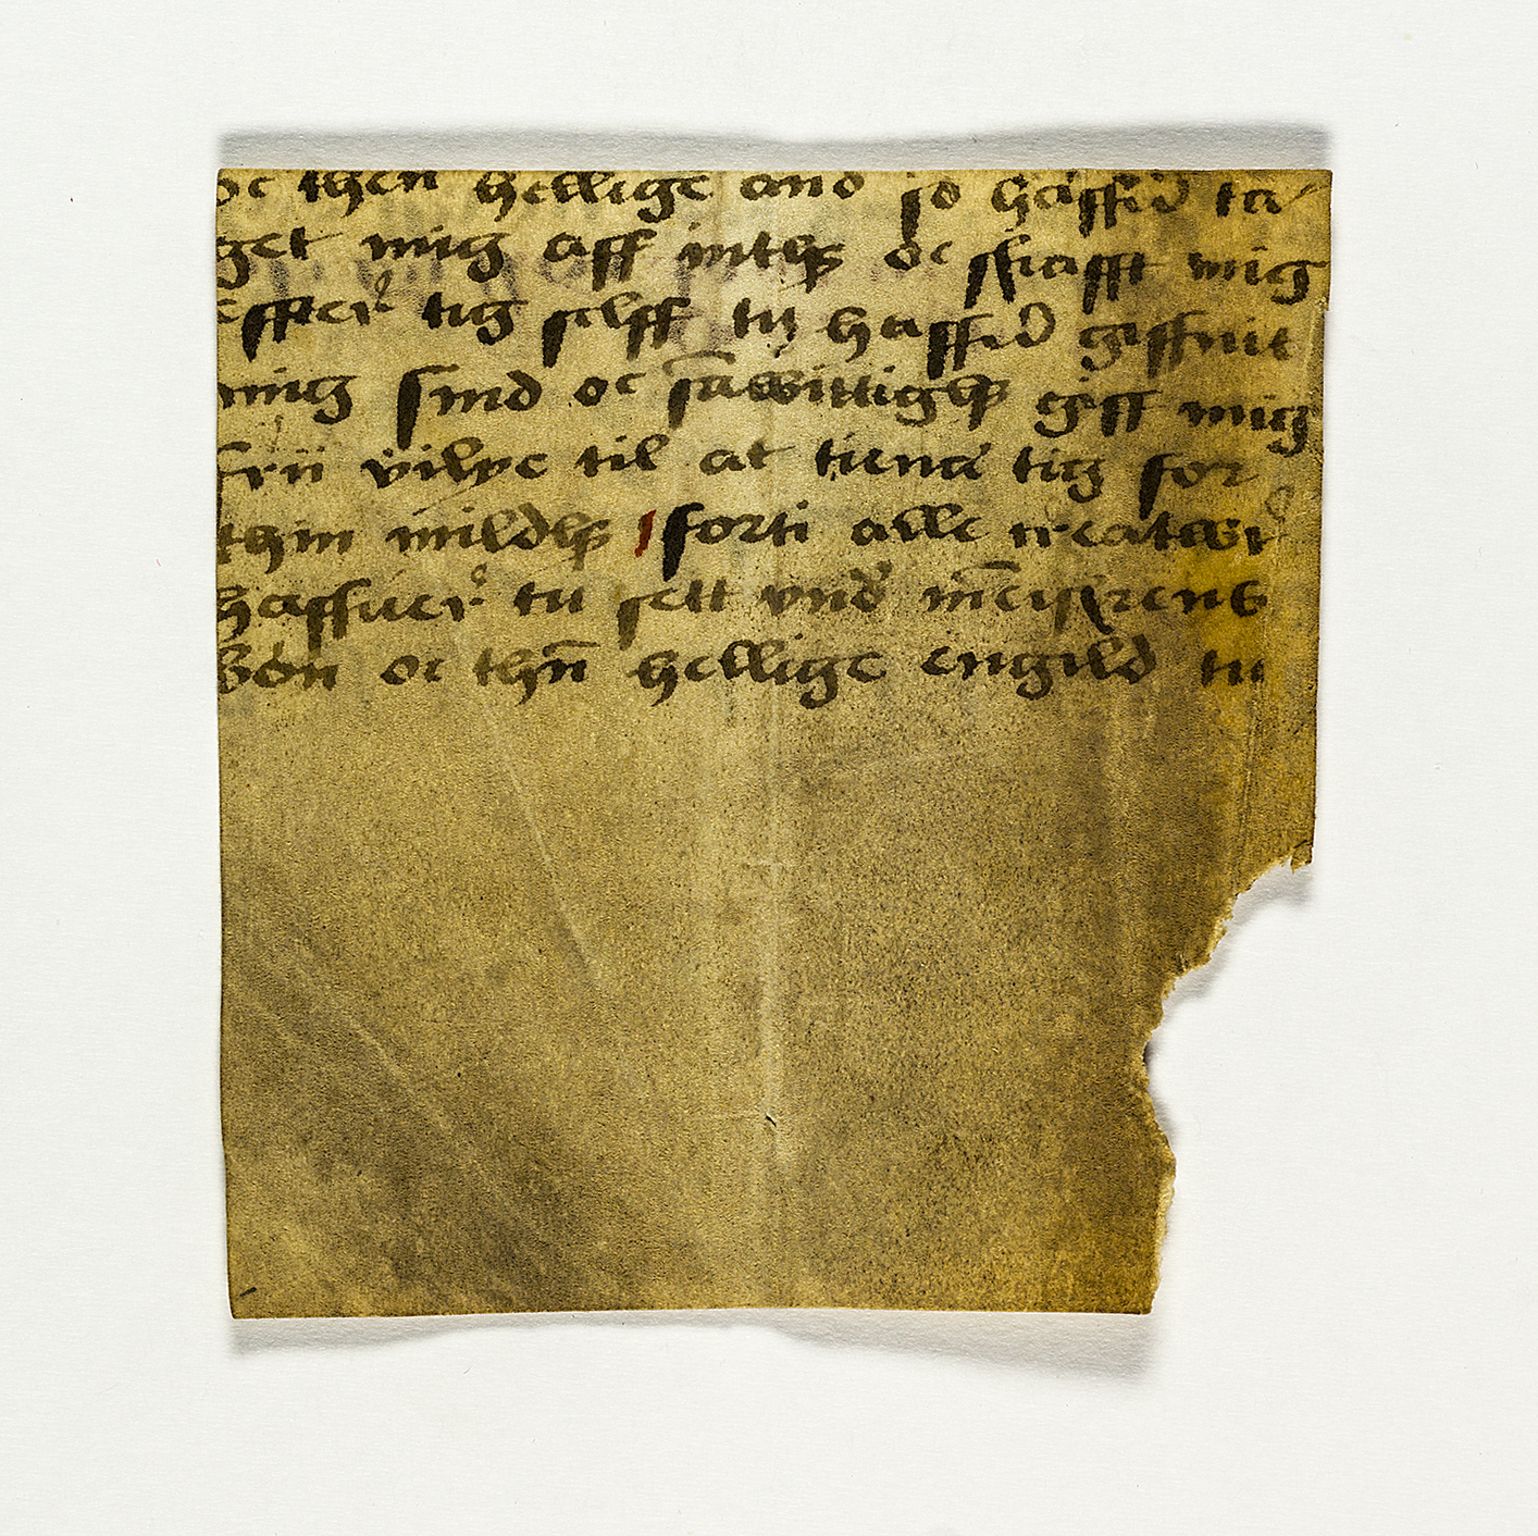 oc then hellige and so haffer ta
get mig aff inthꝫ oc skafft mig
effter tig selff tu haffer giffuit
mig sind oc sāwittighꝫ giff mig
frii vilye til at tiena tig for
thin mildhꝫ forti alle creatwr
haffuer tu sett vnder mēyskens
bøn oc thn̄ hellige engild tu